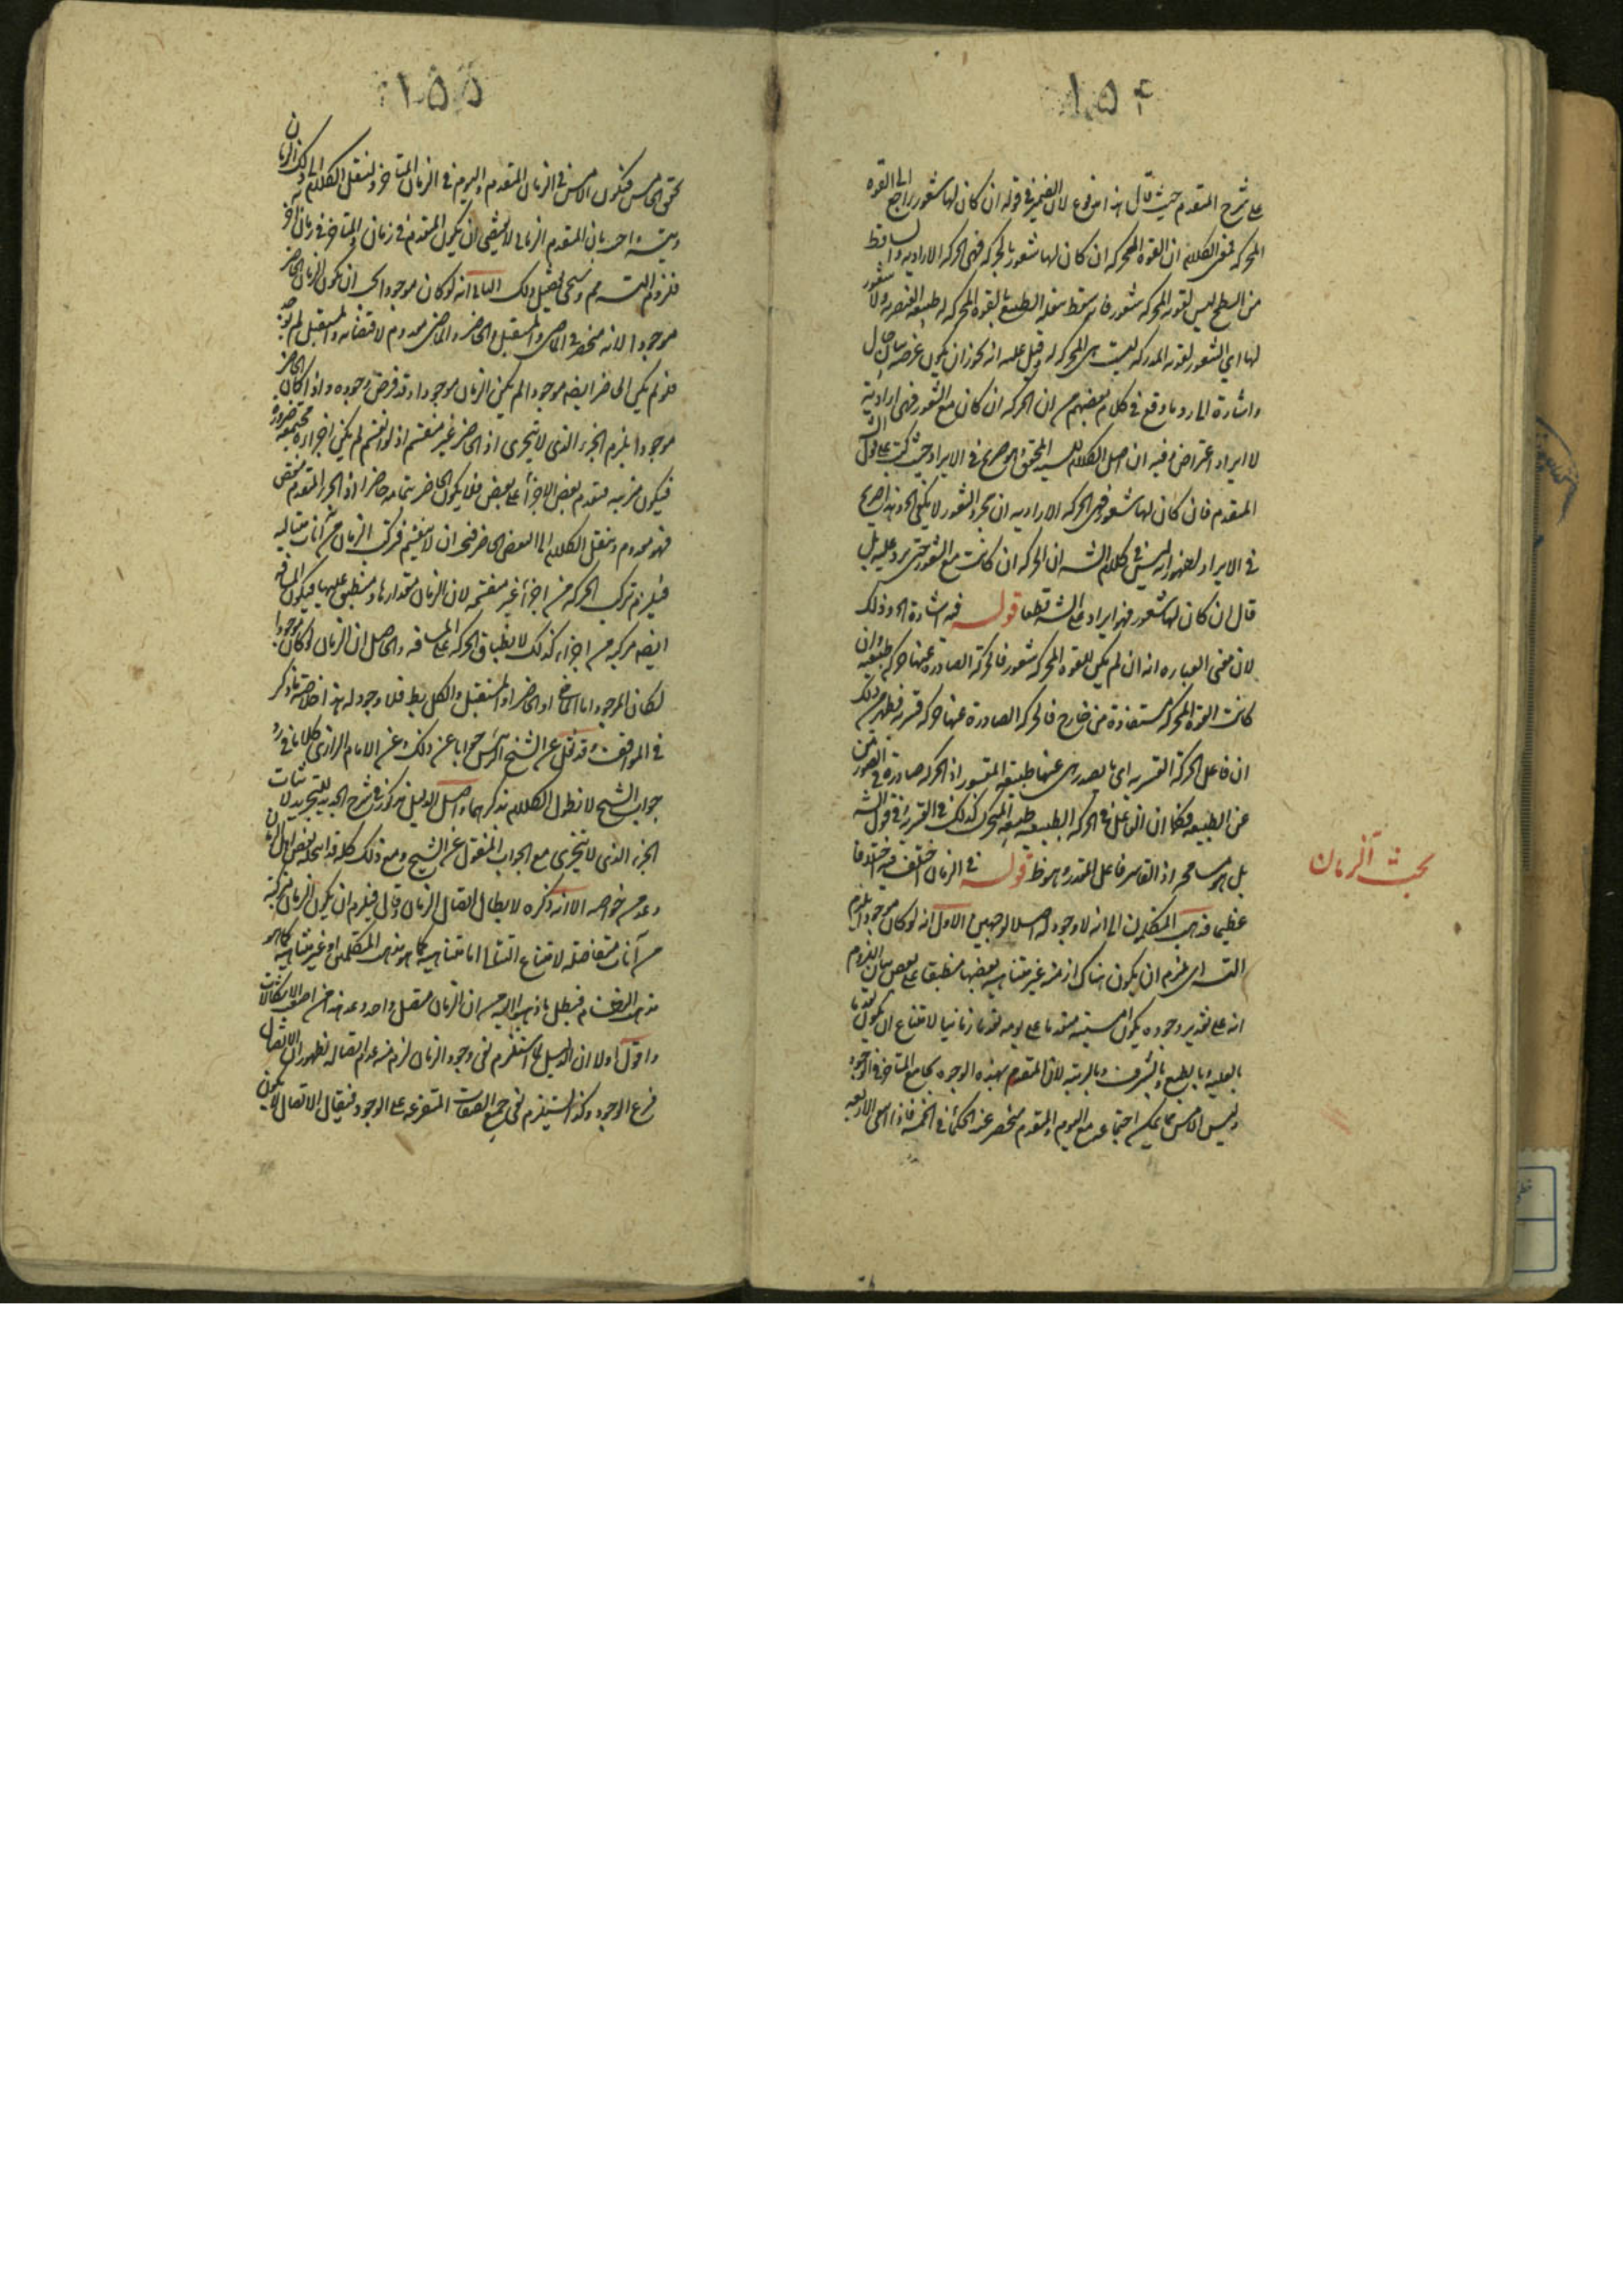 ١٥٤
على شرح المتقدم حيث قال هذا مدفوع لان الضمير في قوله ان كان لها شعور راجع الى القوة
المحركة فمعنى الكلام ان القوة المحركة ان كان لها شعور بالحركة فهي الحركة الارادية والساقط
من السطح ليس لقوته المحركة شعور فانه سقط بفعله الطبيعي بالقوة المحركة له طبيعة العنصرية ولا شعور
لها اي الشعور لقوته المدركة ليست هي المحركة له وقيل عليه انه يجوز ان يكون غرضه بيان حال
واشارة الى رد ما وقع في كلام بعضهم من ان الحركة ان كان مع الشعور فهي ارادية
لا ايراد اعتراض وفيه ان اصل الكلام للسيد المحقق وهو صريح في الايراد حيث كتب على قول الش
المتقدم فان كان لها شعور فهي الحركة الارادية ان مجرد الشعور لا يكفي الخ وهذا صريح
في الايراد لظهور انه ليس في كلام الشه ان الحركة ان كانت مع الشعور حتى يرد عليه بل
قال ان كان لها شعور فهو ايراد على الشه قطعا قوله فيه اشارة الى ذلك
لان معنى العبارة انه ان لم يكن للقوة المحركة شعور فالحركة الصادرة عنها حركة طبيعية وان
كانت القوة المحركة مستفادة من خارج فالحركة الصادرة عنها حركة قسرية فيظهر من ذلك
ان فاعل الحركة القسرية اي ما يصدر هي عنها طبيعة المقسور اذ الحركة صادرة في الصورتين
عن الطبيعة فكما ان الفاعل في الحركة الطبيعية طبيعة المتحرك كذلك في القسرية ففي قول الشه
بل هو مسامحة اذ القاسر فاعل المعد وهو ظ قوله في الزمان اختلف فيه اختلافا
بحث الزمان
عظيما فذهب المتكلمون الى انه لا وجود له اصلا لوجهين الاول انه لو كان موجودا يلزم
التس اي يلزم ان يكون هناك ازمنة غير متناهية بعضها منطبق على بعض بيان اللزوم
انه على تقدير وجوده يكون امسيته متقدما على يومه تقدما زمانيا لامتناع ان يكون تقدما
بالعلية او بالطبع وبالشرف وبالرتبة لان المتقدم بهذه الوجوه يجامع المتاخر في الوجود
وليس الامس مما يمكن اجتماعه مع اليوم والتقدم منحصر عند الحكماء في الخمسة فاذا انتفى الاربعة
١٥٥
تحقق الخامس فيكون الامس في الزمان المتقدم واليوم في الزمان المتاخر وننقل الكلام الى ذلك الزمان
فلزوم التسه مم وسيجئ تفصيل ذلك الثاني انه لو كان موجودا لكان الزمان الحاضر
موجودا لانه منحصر في الماضي والمستقبل والحاضر والماضي معدوم لانقضائه والمستقبل لم يوجد
فلو لم يكن الحاضر ايضه موجودا لم يكن الزمان موجودا وقد فرض وجوده واذا كان الحاضر
موجودا يلزم الجزء الذي لا يتجزى اذ الحاضر غير منقسم اذ لو انقسم لم يكن اجزاؤه مجتمعة ضرورة
فيكون مترتبة متقدم بعض الاجزاء على بعض فلا يكون الحاضر بتمامه حاضرا اذ الجزء المتقدم منقض
فهو معدوم وننقل الكلام الى البعض الحاضر فيجب ان لا ينقسم فتركب الزمان من آنات متتالية
فيلزم تركب الحركة من اجزاء غير منقسمة لان الزمان مقدارها ومنطبق عليها فيكون المسافة
ايضه مركبة من اجزاء كذلك لانطباق الحركة على المسافة والحاصل ان الزمان لو كان موجودا
لكان الموجود اما الماضي او الحاضر او المستقبل والكل بط فلا وجود له هذا خلاصة ما ذكر
في المواقف وقد نقل عن الشيخ الرئيس جوابا عن ذلك وعن الامام الرازي كلاما في رد
جواب الشيخ لا نطول الكلام بذكرهما واصل الدليل مذكور في شرح الجديد للتجريد لاثبات
الجزء الذي لا يتجزى مع الجواب المنقول عن الشيخ ومع ذلك كله قد انتحله بعض اهل الزمان
وعده من خواصه الا انه ذكره لابطال اتصال الزمان وقال فيلزم ان يكون الزمان مركبة
من آنات متفاصلة لامتناع التتالي اما متناهية كما هو مذهب المتكلمين او غير متناهية كما هو
مذهب النظام فيبطل ما ذهب اليه من ان الزمان متصل واحد وعد هذا من اصعب الاشكالات
واقول اولا ان الدليل لما استلزم نفي وجود الزمان لزم منه عدم اتصاله لظهور ان الاتصال
فرع الوجود وكذا يستلزم نفي جميع الصفات المتفرعة على الوجود فيقال الاتصال لا يكون